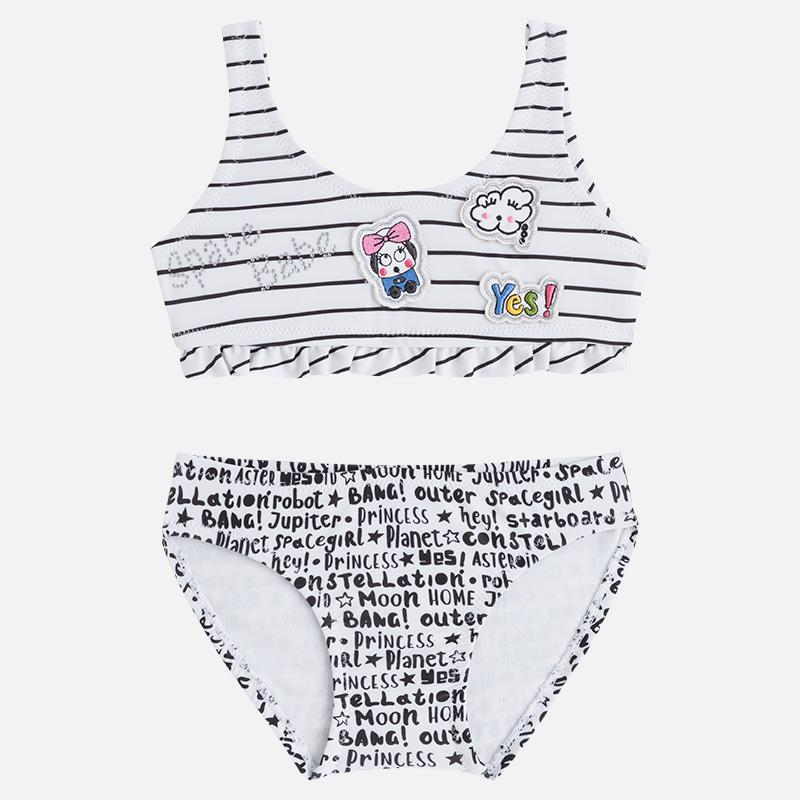 Space
Babe
Yes!
ASTER YES Moon HOME Jupiter • space
ELLation robot ★ BANG! outer spacegirl ★ Pr
★ BANG! Jupiter • Princess ★ hey! starboard
Planet spacegirl ★ Planet ☆ constell
hey! • Princess ★ yes! Asteroid
onstellation • rob
oid ☆ Moon HOME J
★ BANG! outer
r • Princess ★ h
girl ★ Planet ☆
rincess ★ yes!
tellation
☆ Moon HOM
BANG! oute
Princess ★